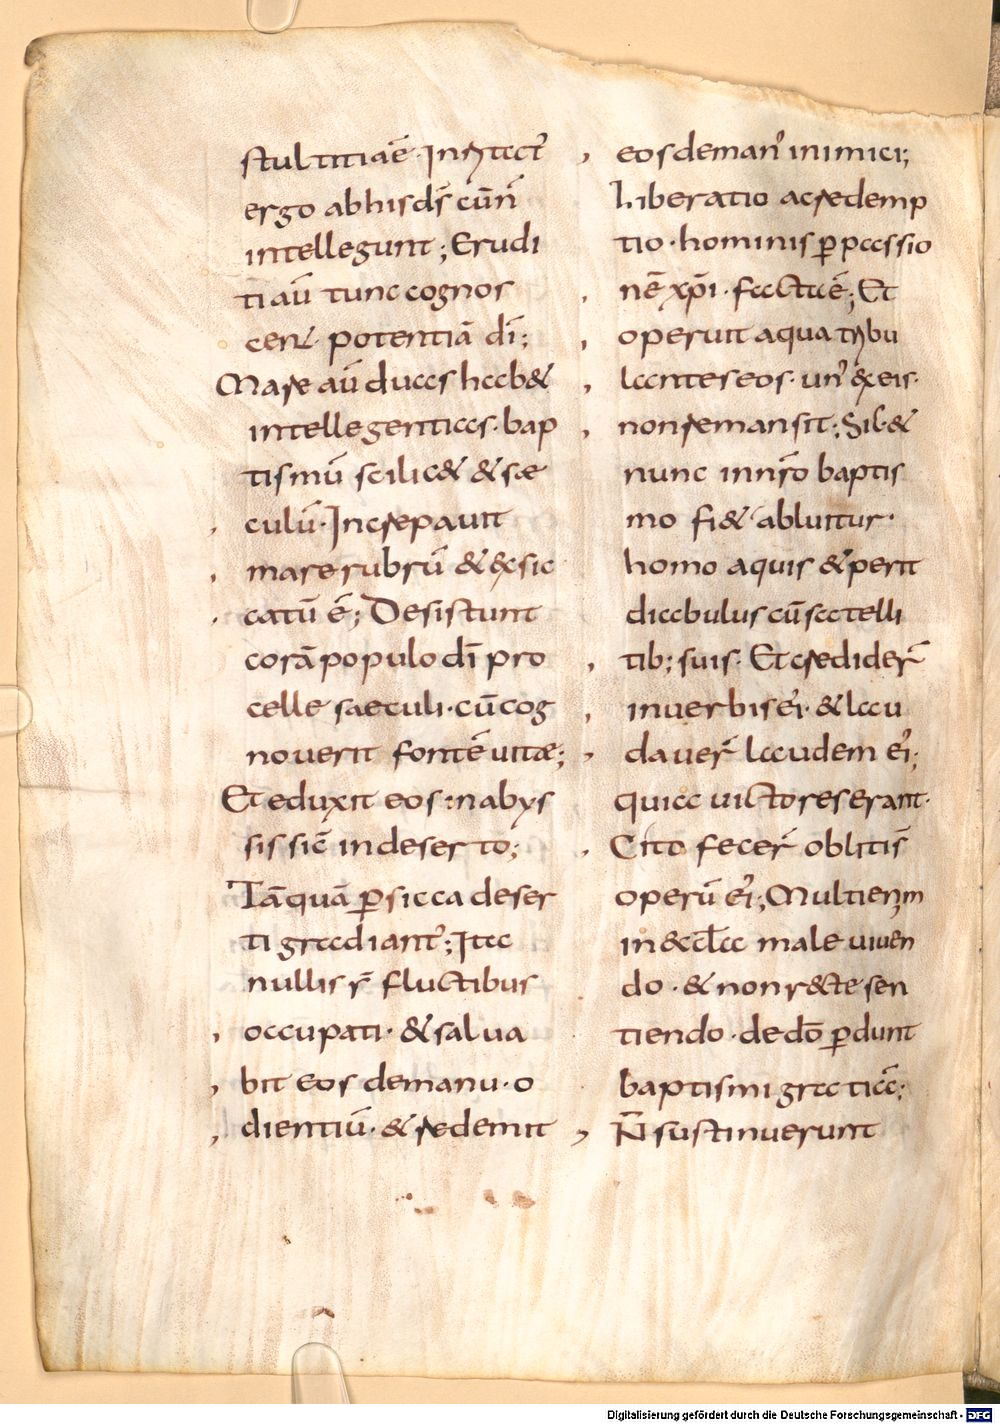 stultitiaē· Int̄ tect̄
ergo abhis ds̄ cūn̄
intellegunt; Erudi
ti aū tunc cognos
cent· potentiā dī;
Mare aū duas hab&
intellegentias· bap
tismū scilic& & sæ
culū· Increpauit
mare rubrū & &xsic
catū ē; Desistunt
corā populo dī pro
cellę saeculi· cū cog
nouerit fontē uitæ;
Et eduxit eos in abys
sis sic̄ in deserto;
Tāquā ꝑ sicca deser
ti gradiant̄; Ita
nullis r̄ fluctibus
occupati· & salua
bit eos demanu· o
dientiū· & redemit
eos deman̄ inimici;
Liberatio ac redemp
tio· hominis ꝑ passio
nē xp̄i· facta ē; Et
operuit aqua tribu
lantes eos· un̄ &x eis·
non remansit; Sic· &
nunc in nr̄o baptis
mo fi& abluitur·
homo aquis & perit
diabulus cū satelli
tib; suis· Et credider̄
in uerbis ei̓· & lau
dauer̄ laudem ei̓;
quia uictores erant·
Cito fecer̄ obliti s̄
operū ei̓; Multi enim
in &ccl̄a male uiuen
do· & non r&cte sen
tiendo· de dō ꝑdunt
baptismi gratiā;
N̄ sustinuerunt
Digitalisierung gefördert durch die Deutsche Forschungsgemeinschaft - DFG